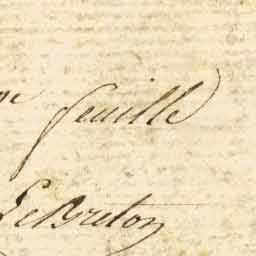 feuille
Le Breton